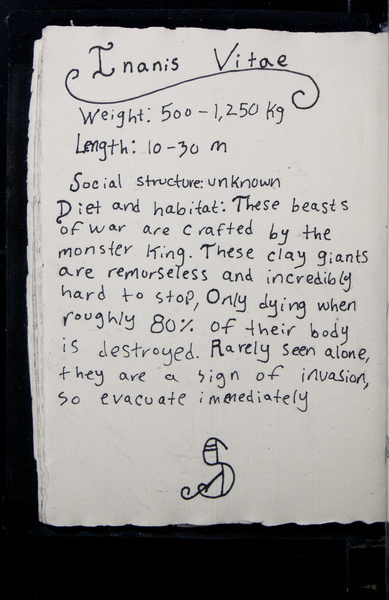 Inanis Vitae
Weight: 500-1,250 kg
Length: 10-30 m
Social structure: unknown
Diet and habitat: These beasts
of war are crafted by the
monster King. These clay giants
are remorseless and incredibly
hard to stop, Only dying when
roughly 80% of their body
is destroyed. Rarely seen alone,
they are a sign of invasion,
so evacuate immediately